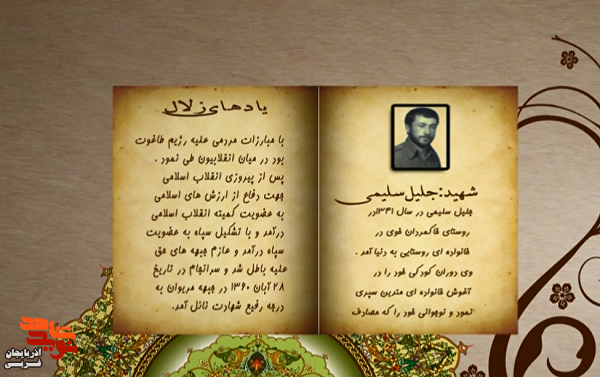 شهید:جلیل سلیمی
جلیل سلیمی در سال ۱۳۴۱در
روستای خاکمردان خوی در
خانواده ای روستایی به دنیا آمد .
وی دوران کودکی خود را در
آغوش خانواده ای متدین سپری
نمود و نوجوانی خود را که مصادف
یادهای زلال
با مبارزات مردمی علیه رژیم طاغوت
بود در میان انقلابیون طی نمود .
پس از پیروزی انقلاب اسلامی
جهت دفاع از ارزش های اسلامی
به عضویت کمیته انقلاب اسلامی
درآمد و با تشکیل سپاه به عضویت
سپاه درآمد و عازم جبهه های حق
علیه باطل شد و سرانجام در تاریخ
۲۸ آبان ۱۳۶۰ در جبهه مریوان به
درجه رفیع شهادت نائل آمد.
آذربایجان
غربی